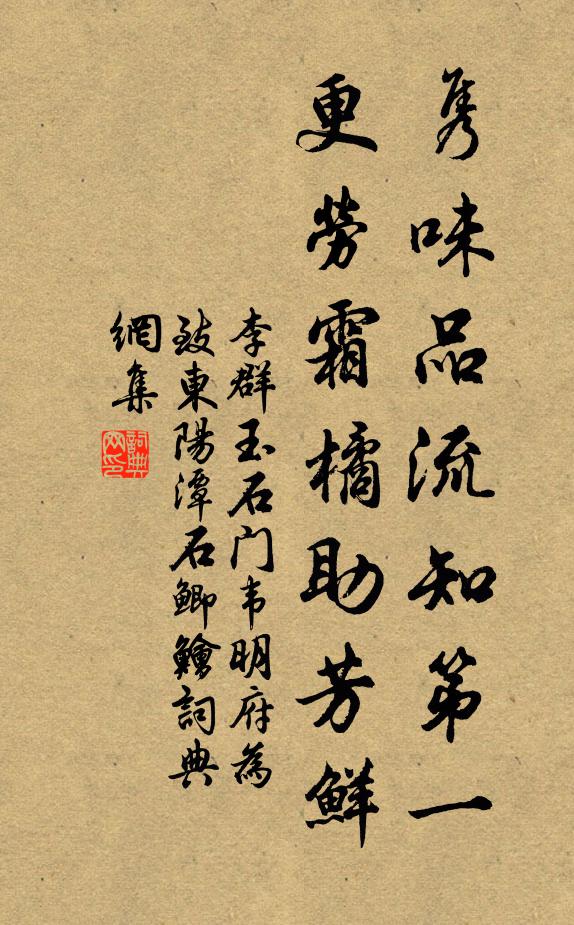 隽味品流知第一
更勞霜橘助芳鮮
李群玉石门韦明府為
致東陽潭石鲫鱠詞典
網集
詞典網印